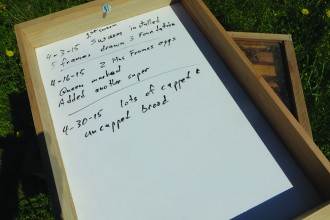 1st queen
4-3-15 Swarm installed
5 frames drawn 3 Foundation
4-16-15 2 Plus Frames eggs
Queen marked
Added another super
4-30-15 lots of capped &
uncapped brood